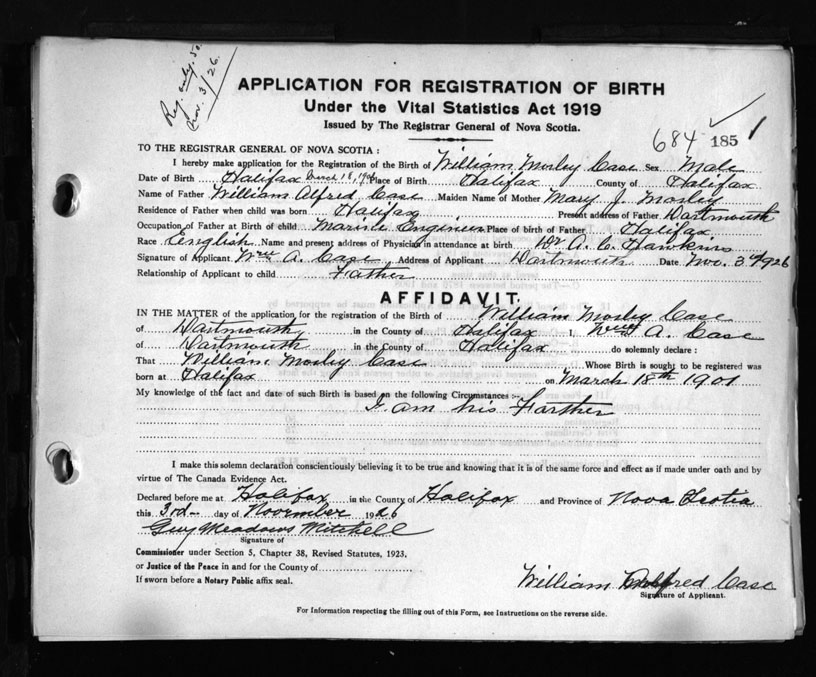 Reg. only. 50
Nov. 3/26.
APPLICATION FOR REGISTRATION OF BIRTH
Under the Vital Statistics Act 1919
Issued by The Registrar General of Nova Scotia.
684 185 1
TO THE REGISTRAR GENERAL OF NOVA SCOTIA :
I hereby make application for the Registration of the Birth of William Mosley Case Sex Male
Date of Birth Halifax March 18, 1901 Place of Birth Halifax County of Halifax
Name of Father William Alfred Case Maiden Name of Mother Mary J. Mosley
Residence of Father when child was born Halifax Present address of Father Dartmouth
Occupation of Father at Birth of child Marine Engineer Place of birth of Father Halifax
Race English Name and present address of Physician in attendance at birth Dr A. C. Hawkins
Signature of Applicant Wm A. Case Address of Applicant Dartmouth Date Nov. 3rd 1926
Relationship of Applicant to child Father
AFFIDAVIT.
IN THE MATTER of the application for the registration of the Birth of William Mosley Case
of Dartmouth in the County of Halifax I, Wm A. Case
of Dartmouth in the County of Halifax do solemnly declare :
That William Mosley Case Whose Birth is sought to be registered was
born at Halifax on March 18th 1901
My knowledge of the fact and date of such Birth is based on the following Circumstances :-
I am his Farther
I make this solemn declaration conscientiously believing it to be true and knowing that it is of the same force and effect as if made under oath and by
virtue of The Canada Evidence Act.
Declared before me at Halifax in the County of Halifax and Province of Nova Scotia
this 3rd day of November 1926
Guy Meadows Mitchell
Signature of
Commissioner under Section 5, Chapter 38, Revised Statutes, 1923,
or Justice of the Peace in and for the County of
If sworn before a Notary Public affix seal.
William Alfred Case
Signature of Applicant.
For Information respecting the filling out of this Form, see Instructions on the reverse side.